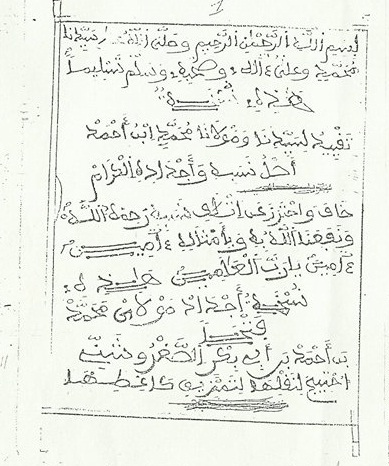 1
بسم الله الرحمن الرحيم وصلى الله على سيدنا
محمد وعلى ءاله وصحبه وسلم تسليما
هذه نسخة
تقييد لسيدنا ومولانا محمد ابن أحمد
أصل نسبه وأجداده الكرام
خاف واحترز على نسبه رحمه الله
ونفعنا الله به وبأمثاله ءامين
ءامين يارب العالمين هذه
نسخة أجداد مولاي محمد
بن أحمد بن أبي بكر الصغر
احتيج لنقلها لتمزيق كاغطها